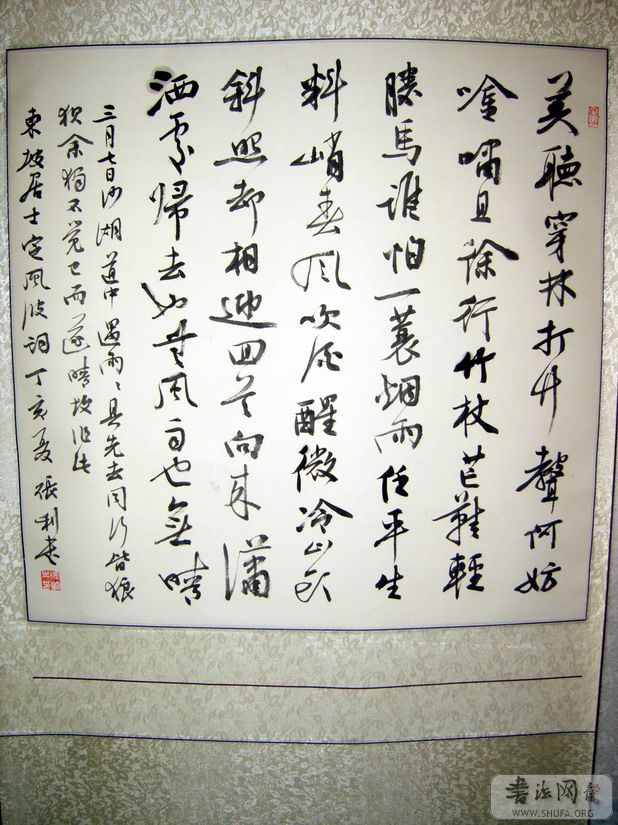 莫聽穿林打叶聲何妨
吟嘯且徐行竹杖芒鞋輕
勝馬誰怕一蓑烟雨任平生
料峭春風吹酒醒微冷山頭
斜照却相迎回首向来瀟
洒處歸去也無風雨也無晴
三月七日沙湖道中遇雨々具先去同行皆狼
狽余獨不覺已而遂晴故作此
東坡居士定風波詞丁亥夏張利書
书法网
WWW.SHUFA.ORG